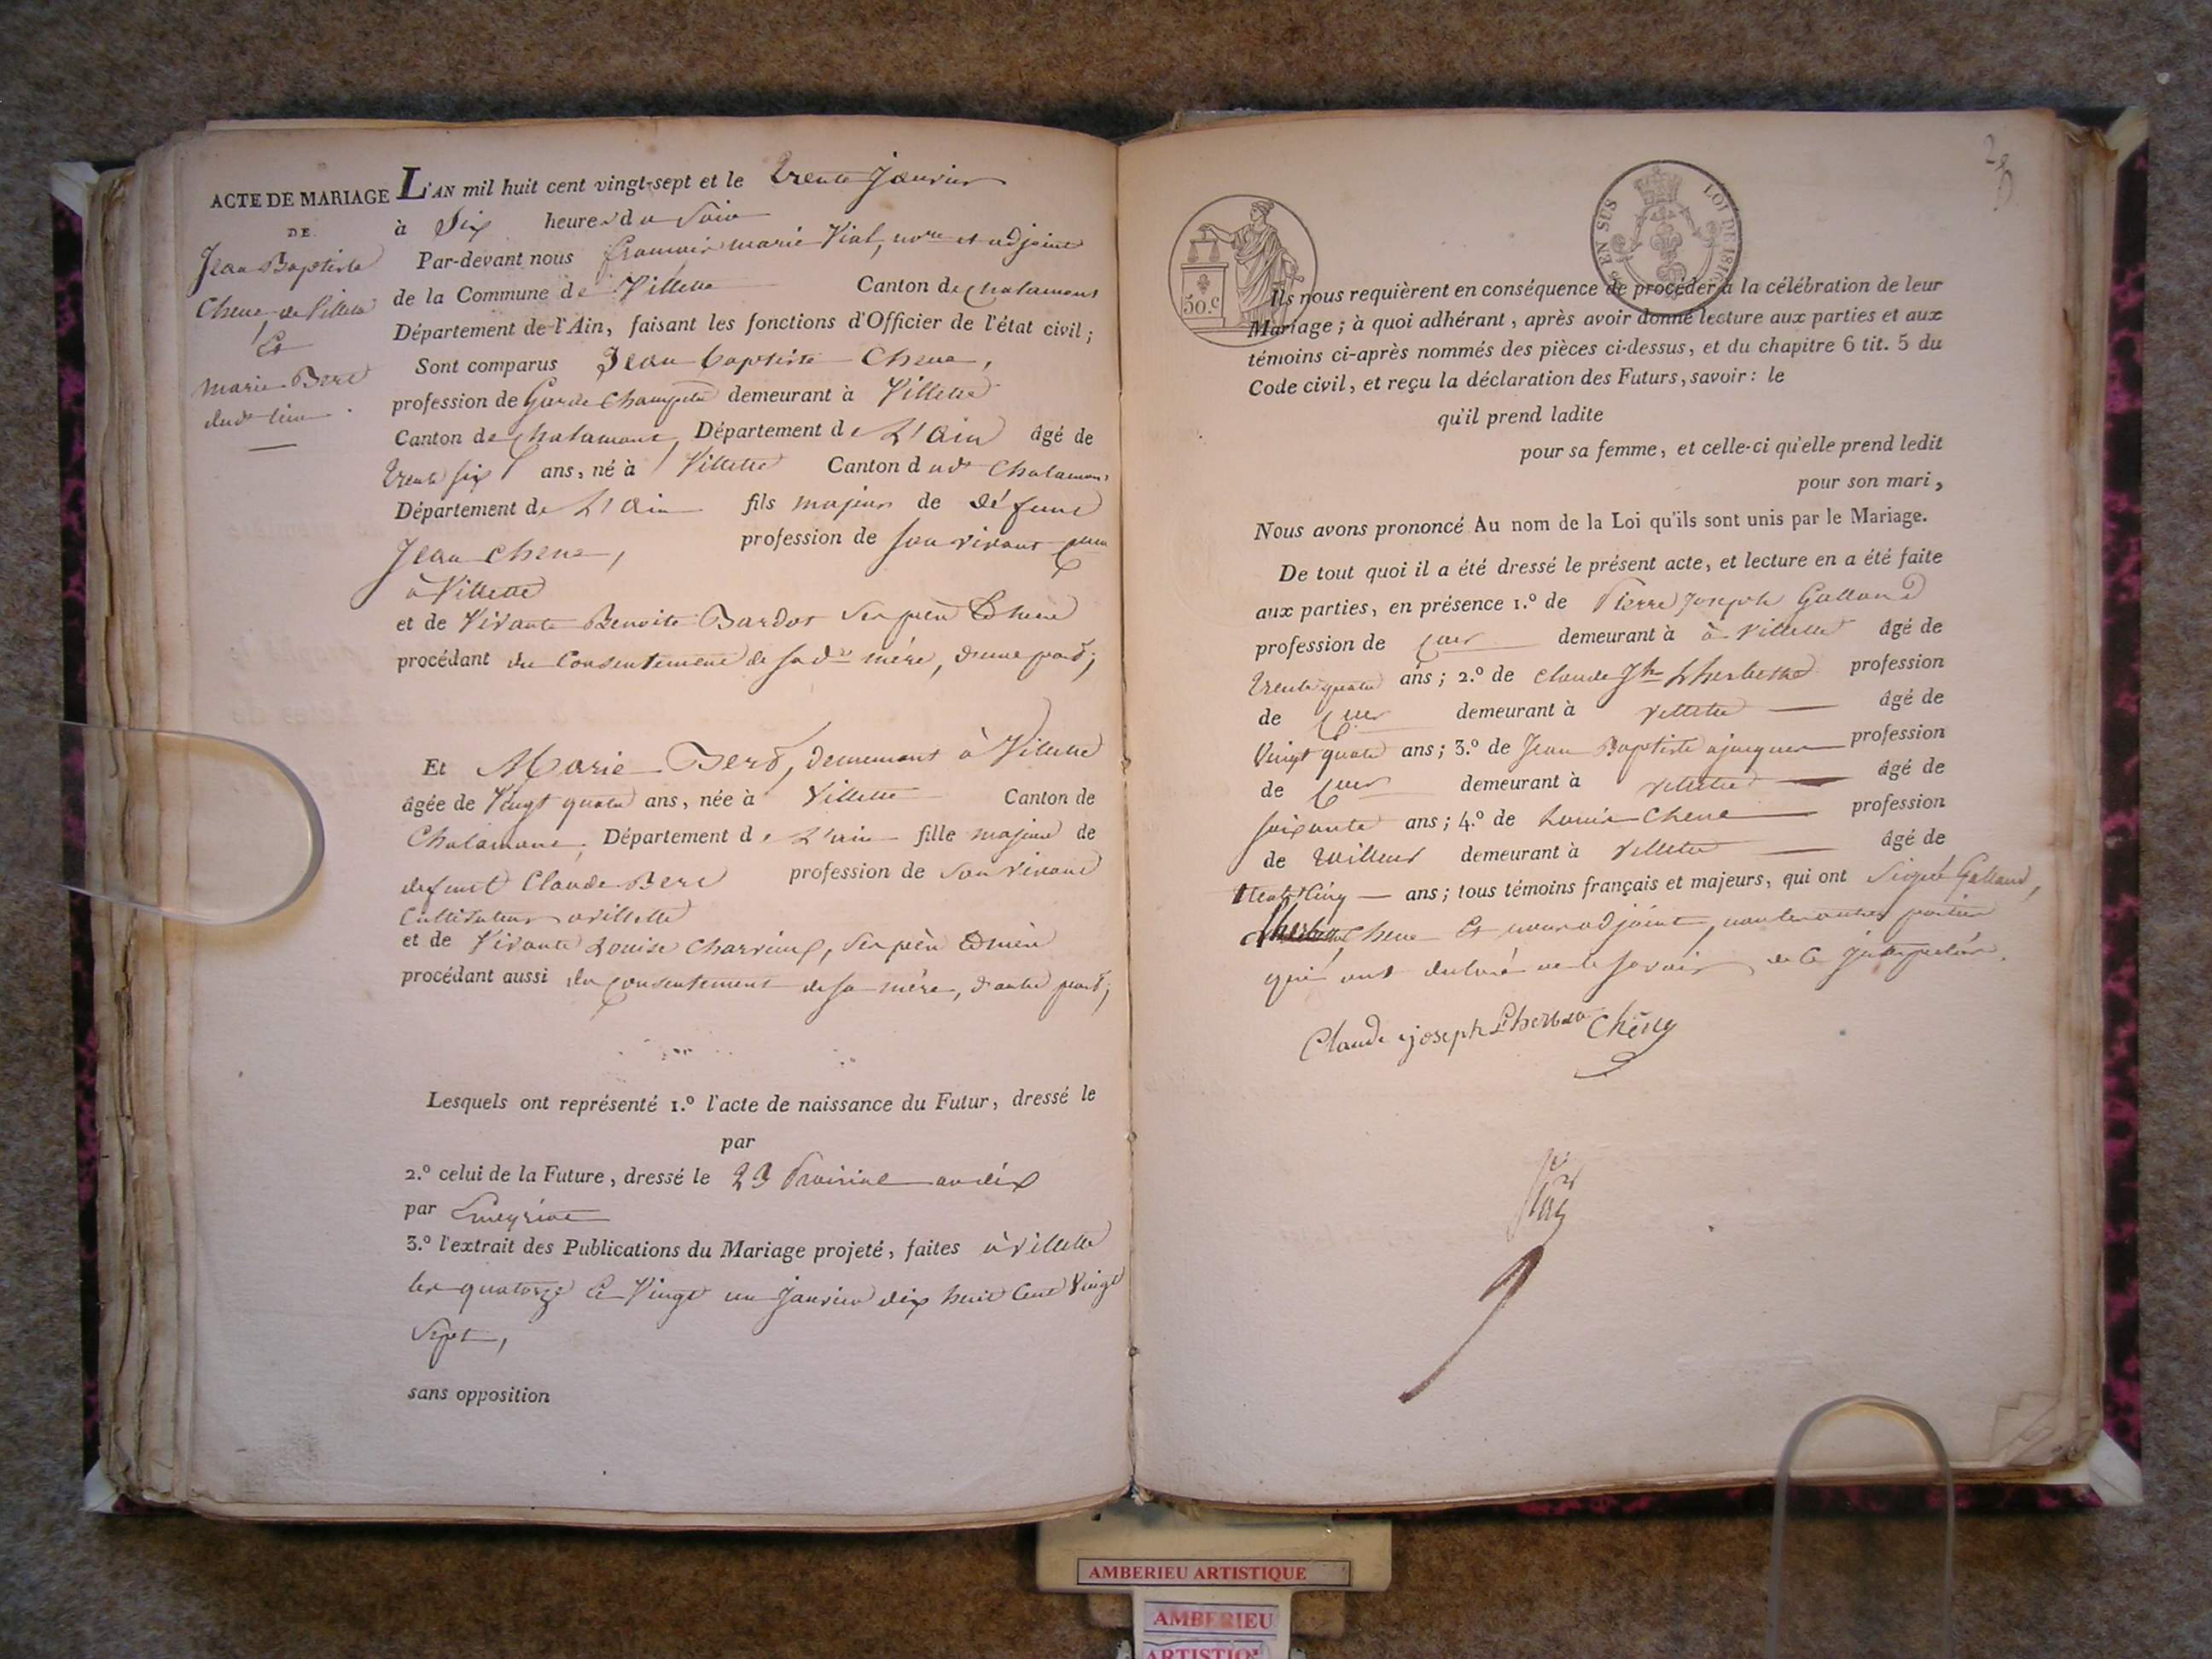 ACTE DE MARIAGE
DE
Jean Baptiste
Chene de Villette
Et
Marie Berd
dud. lieu
L'AN mil huit cent vingt-sept et le trente Janvier
à Six heures du Soir
Par-devant nous françois marie Vial, et adjoint
de la Commune de Villette Canton de chalamont
Département de l'Ain, faisant les fonctions d'Officier de l'état civil;
Sont comparus Jean baptiste Chene,
profession de Garde Champetre demeurant à Villette
Canton de chalamont, Département de L'Ain âgé de
trente six ans, né à Villette Canton dudt Chalamont
Département de L'Ain fils majeur de défunt
Jean chene, profession de son vivant
à Villette
et de Vivante Benoite Bardot Ses père & mère
procédant du Consentement de sade mère, d'une part;
Et Marie Berd, demeurant à Villette
âgée de Vingt quatre ans, née à Villette Canton de
Chalamont, Département de L'ain fille majeure de
defunt Claude Berd profession de son vivant
Cultivateur a villette
et de Vivante Louise Charvieux, Ses père & mère
procédant aussi du Consentement de sa mère, d'autre part;
Lesquels ont représenté 1.º l'acte de naissance du Futur, dressé le
par
2.º celui de la Future, dressé le 29 Prairial an dix
par
3.º l'extrait des Publications du Mariage projeté, faites à Villette
les quatorze & Vingt un janvier dix huit Cent Vingt
Sept,
sans opposition
50.c
EN SUS
LOI DE 1816
Ils nous requièrent en conséquence de procéder à la célébration de leur
Mariage; à quoi adhérant, après avoir donné lecture aux parties et aux
témoins ci-après nommés des pièces ci-dessus, et du chapitre 6 tit. 5 du
Code civil, et reçu la déclaration des Futurs, savoir: le
qu'il prend ladite
pour sa femme, et celle-ci qu'elle prend ledit
pour son mari,
Nous avons prononcé Au nom de la Loi qu'ils sont unis par le Mariage.
De tout quoi il a été dressé le présent acte, et lecture en a été faite
aux parties, en présence 1.º de Pierre Joseph Galland
profession de demeurant à à Villette âgé de
trente quatre ans; 2.º de claude Jh Lherbette profession
de demeurant à Villette âgé de
Vingt quatre ans; 3.º de Jean Baptiste ajacques profession
de demeurant à villette âgé de
soixante ans; 4.º de Louis Chene profession
de tailleur demeurant à Villette âgé de
trente Cinq ans; tous témoins français et majeurs, qui ont Signé Galland,
Chene Et nous adjoint, non les autres parties
qui ont declaré ne le savoir de ce
Claude joseph Lherbette Chêne
AMBERIEU ARTISTIQUE
AMBERIEU
ARTISTIQ